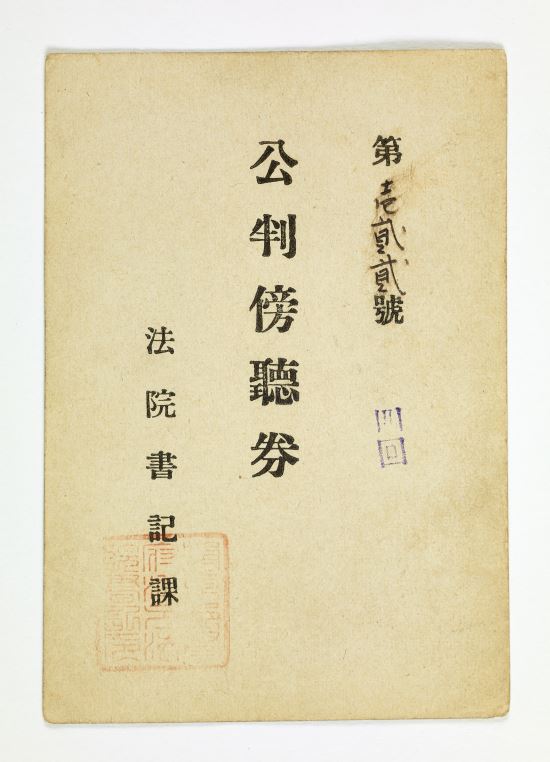 第壹貳貳號
四回
公判傍聽券
法院書記課